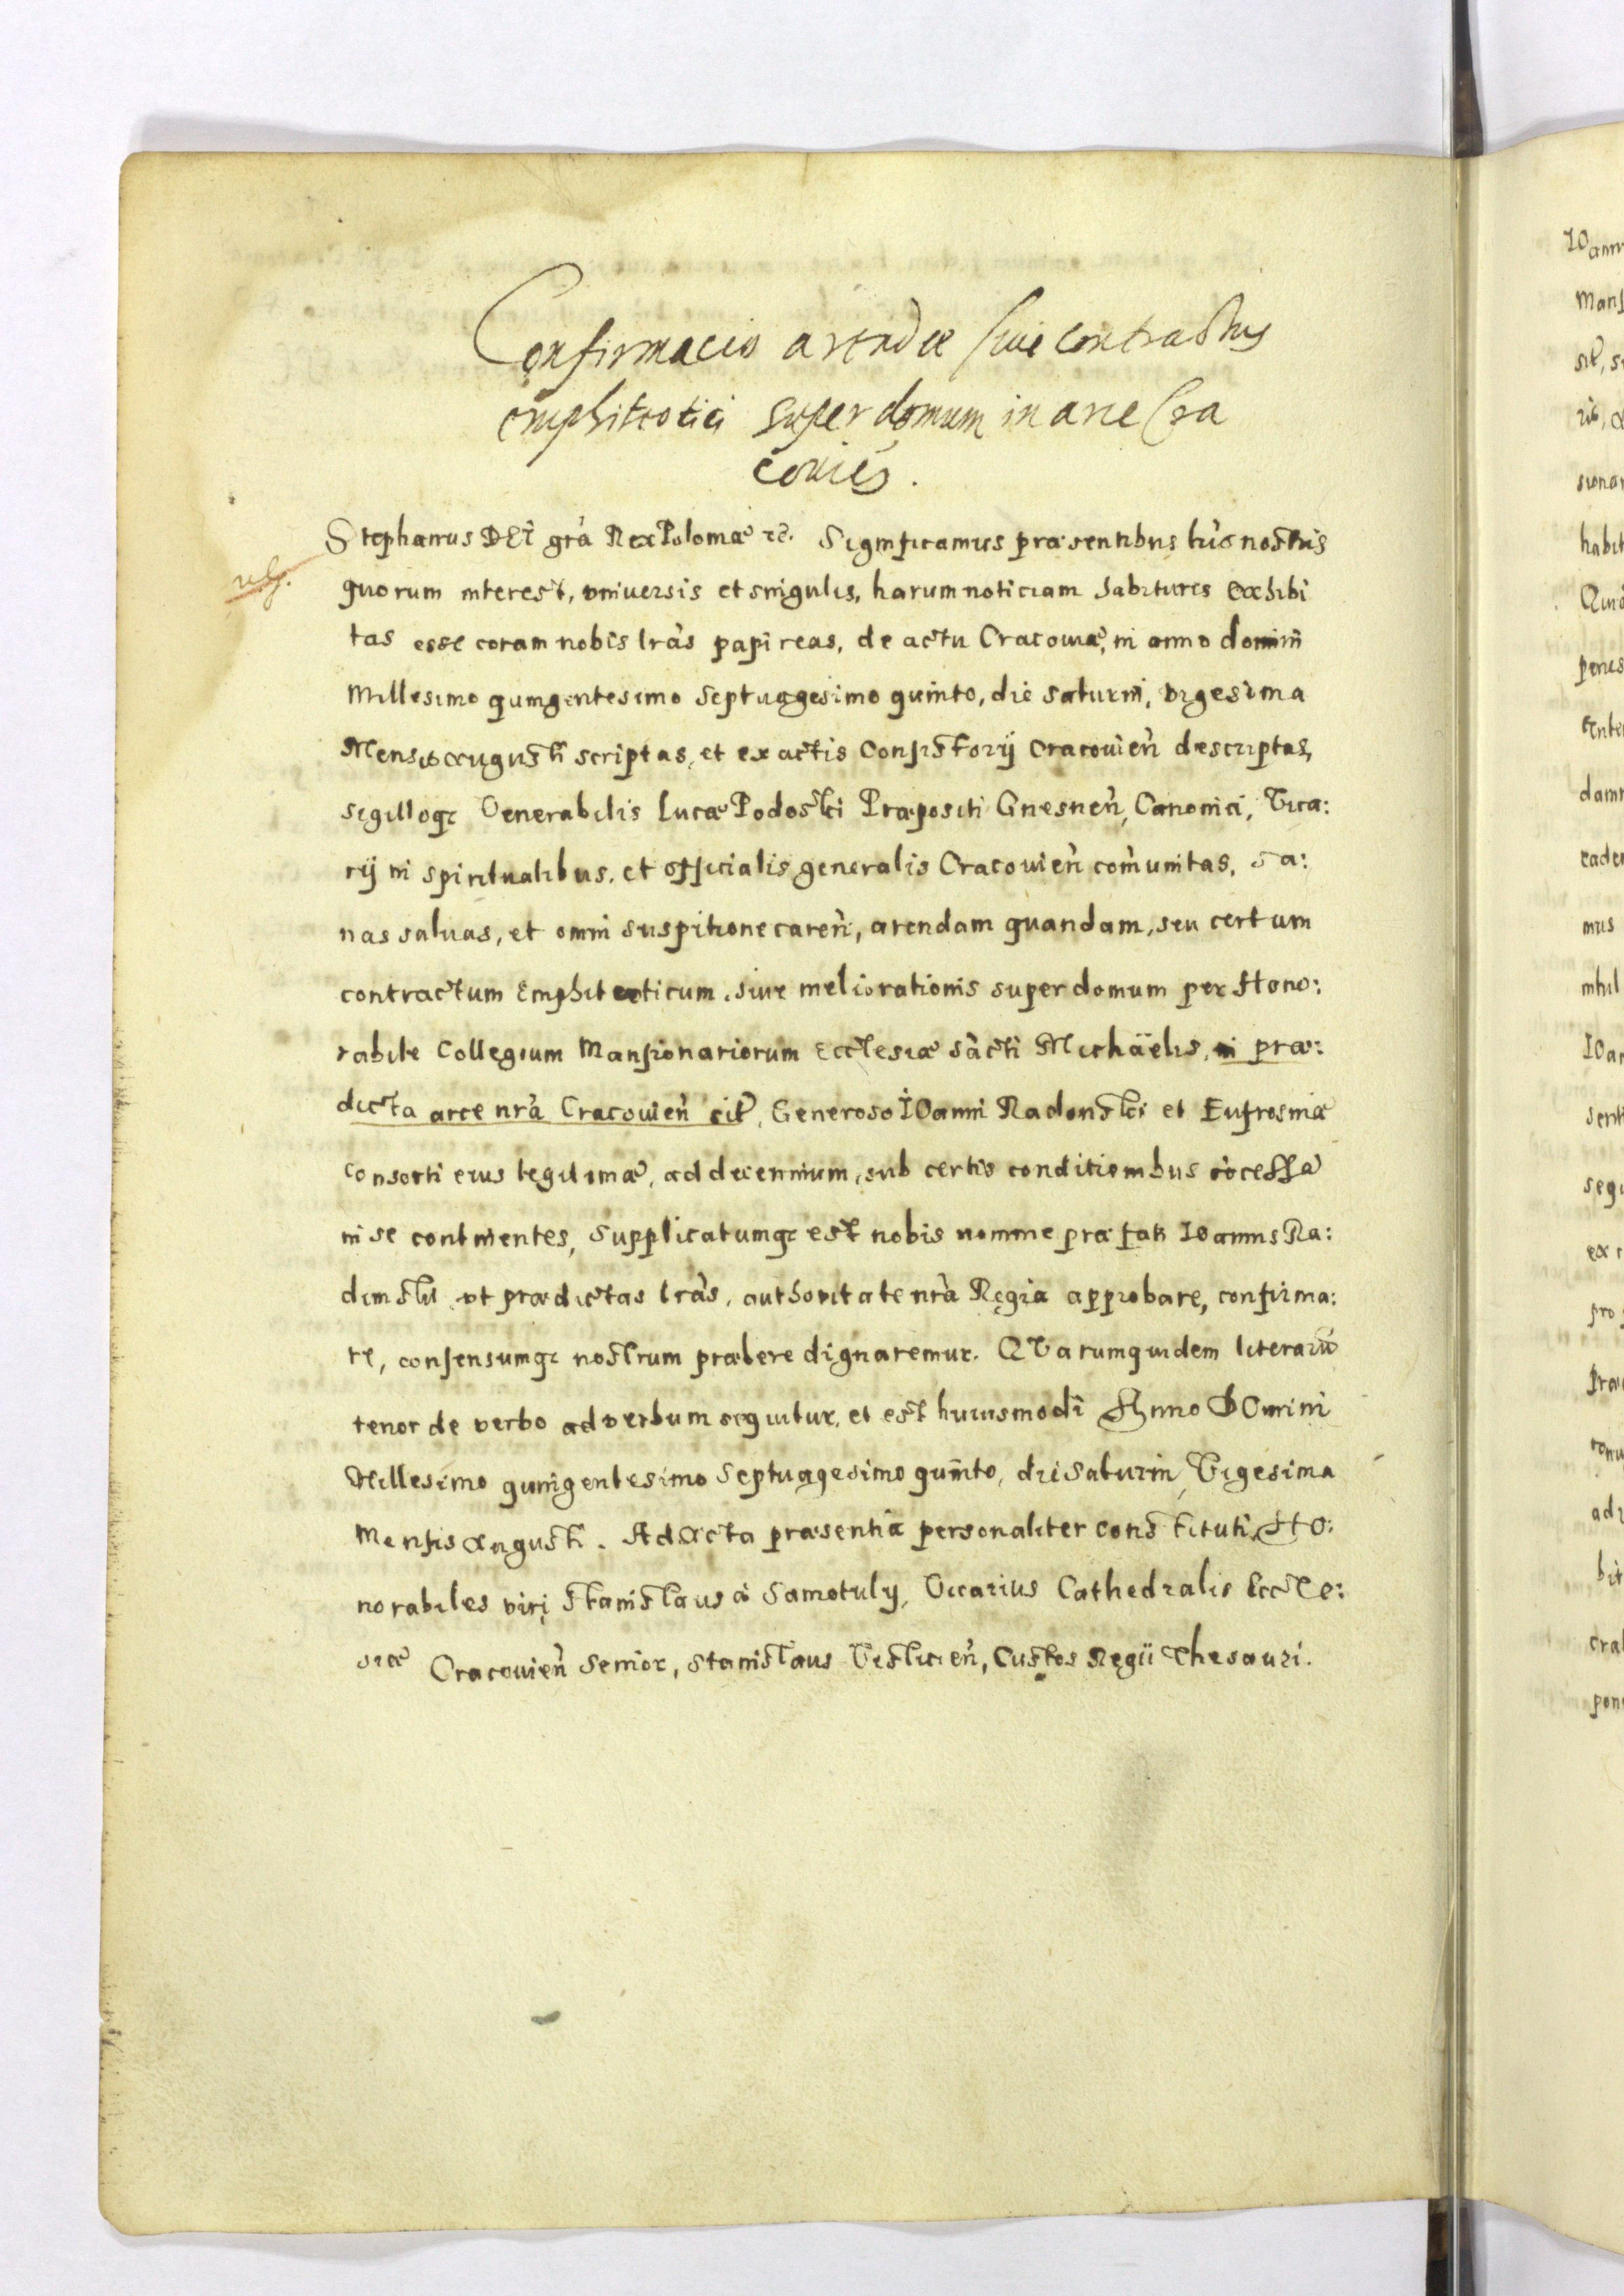 Confirmacio arendæ siue contractus
emphiteotici super domum in arce Cra
couien̄.
Stephanus DEI grã Rex Poloniæ ꝛc̃. Significamus præsentibus lris̀ nostris
quorum interest, vniuersis et singulis, harum noticiam habituris exhibi
tas esse coram nobis lrãs papireas, de actu Cracouiæ, in anno domini
Millesimo quingentesimo Septuagesimo quinto, die saturni, vigesima
Mensis augusti scriptas, et ex actis Consistorij Cracouien̄ descriptas,
sigilloqꝫ Venerabilis Lucæ Podoski Præpositi Gnesnen̄, Canonici, Vica:
rij in spiritualibus, et officialis generalis Cracouien̄ com̄unitas, sa:
nas saluas, et omni suspitione caren̄, arendam quandam, seu certum
contractum Emphiteoticum, siue meliorationis super domum per Hono:
rabile Collegium Mansionariorum Ecclesiæ sãcti Michaëlis, in præ:
dicta arce nrã Cracouien̄ sit̃, Generoso IOanni Radonski et Eufrosinæ
consorti eius legitimæ, ad decennium, sub certis conditionibus
in se continentes, Supplicatumqꝫ est nobis nomine præfati IOannis Ra:
dinski vt prædictas lrãs, authoritate nrã Regia approbare, confirma:
re, consensumqꝫ nostrum præbere dignaremur. QVarumquidem literarũ
tenor de verbo ad verbum sequitur, et est huiusmodi Anno DOmini
Millesimo quingentesimo Septuagesimo quinto, die Saturni, Vigesima
Mensis augusti. Ad acta præsentia personaliter constituti, Ho:
norabiles viri Stanislaus à Samotuly, Vicarius Cathedralis Eccle:
siæ Cracouien̄ Senior, Stanislaus Vislicien̄, Custos Regii Thesauri.